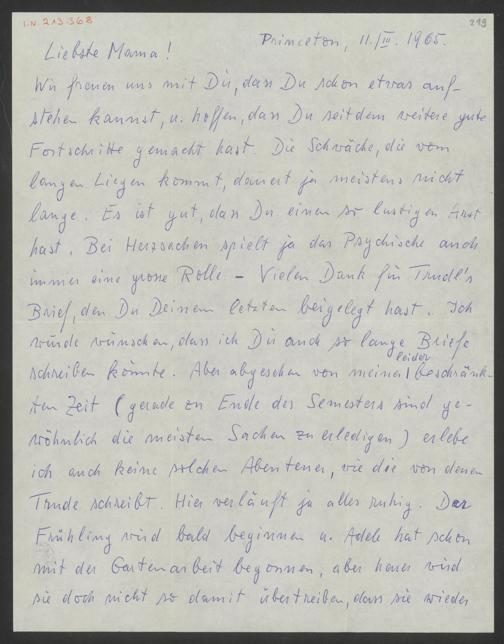 I.N. 213.368
219
Princeton, 11./III. 1965.
Liebste Mama!
Wir freuen uns mit Dir, dass Du schon etwas auf-
stehen kannst, u. hoffen, dass Du seitdem weitere gute
Fortschritte gemacht hast. Die Schwäche, die vom
langen Liegen kommt, dauert ja meistens nicht
lange. Es ist gut, dass Du einen so lustigen Arzt
hast. Bei Herzsachen spielt ja das Psychische auch
immer eine grosse Rolle. – Vielen Dank für Trudl's
Brief, den Du Deinem letzten beigelegt hast. Ich
würde wünschen, dass ich Dir auch so lange Briefe
schreiben könnte. Aber abgesehen von meiner leider beschränk-
ten Zeit (gerade zu Ende des Semesters sind ge-
wöhnlich die meisten Sachen zu erledigen) erlebe
ich auch keine solchen Abenteuer, wie die von denen
Trude schreibt. Hier verläuft ja alles ruhig. Der
Frühling wird bald beginnen u. Adele hat schon
mit der Gartenarbeit begonnen, aber heuer wird
sie doch nicht so damit übertreiben, dass sie wieder